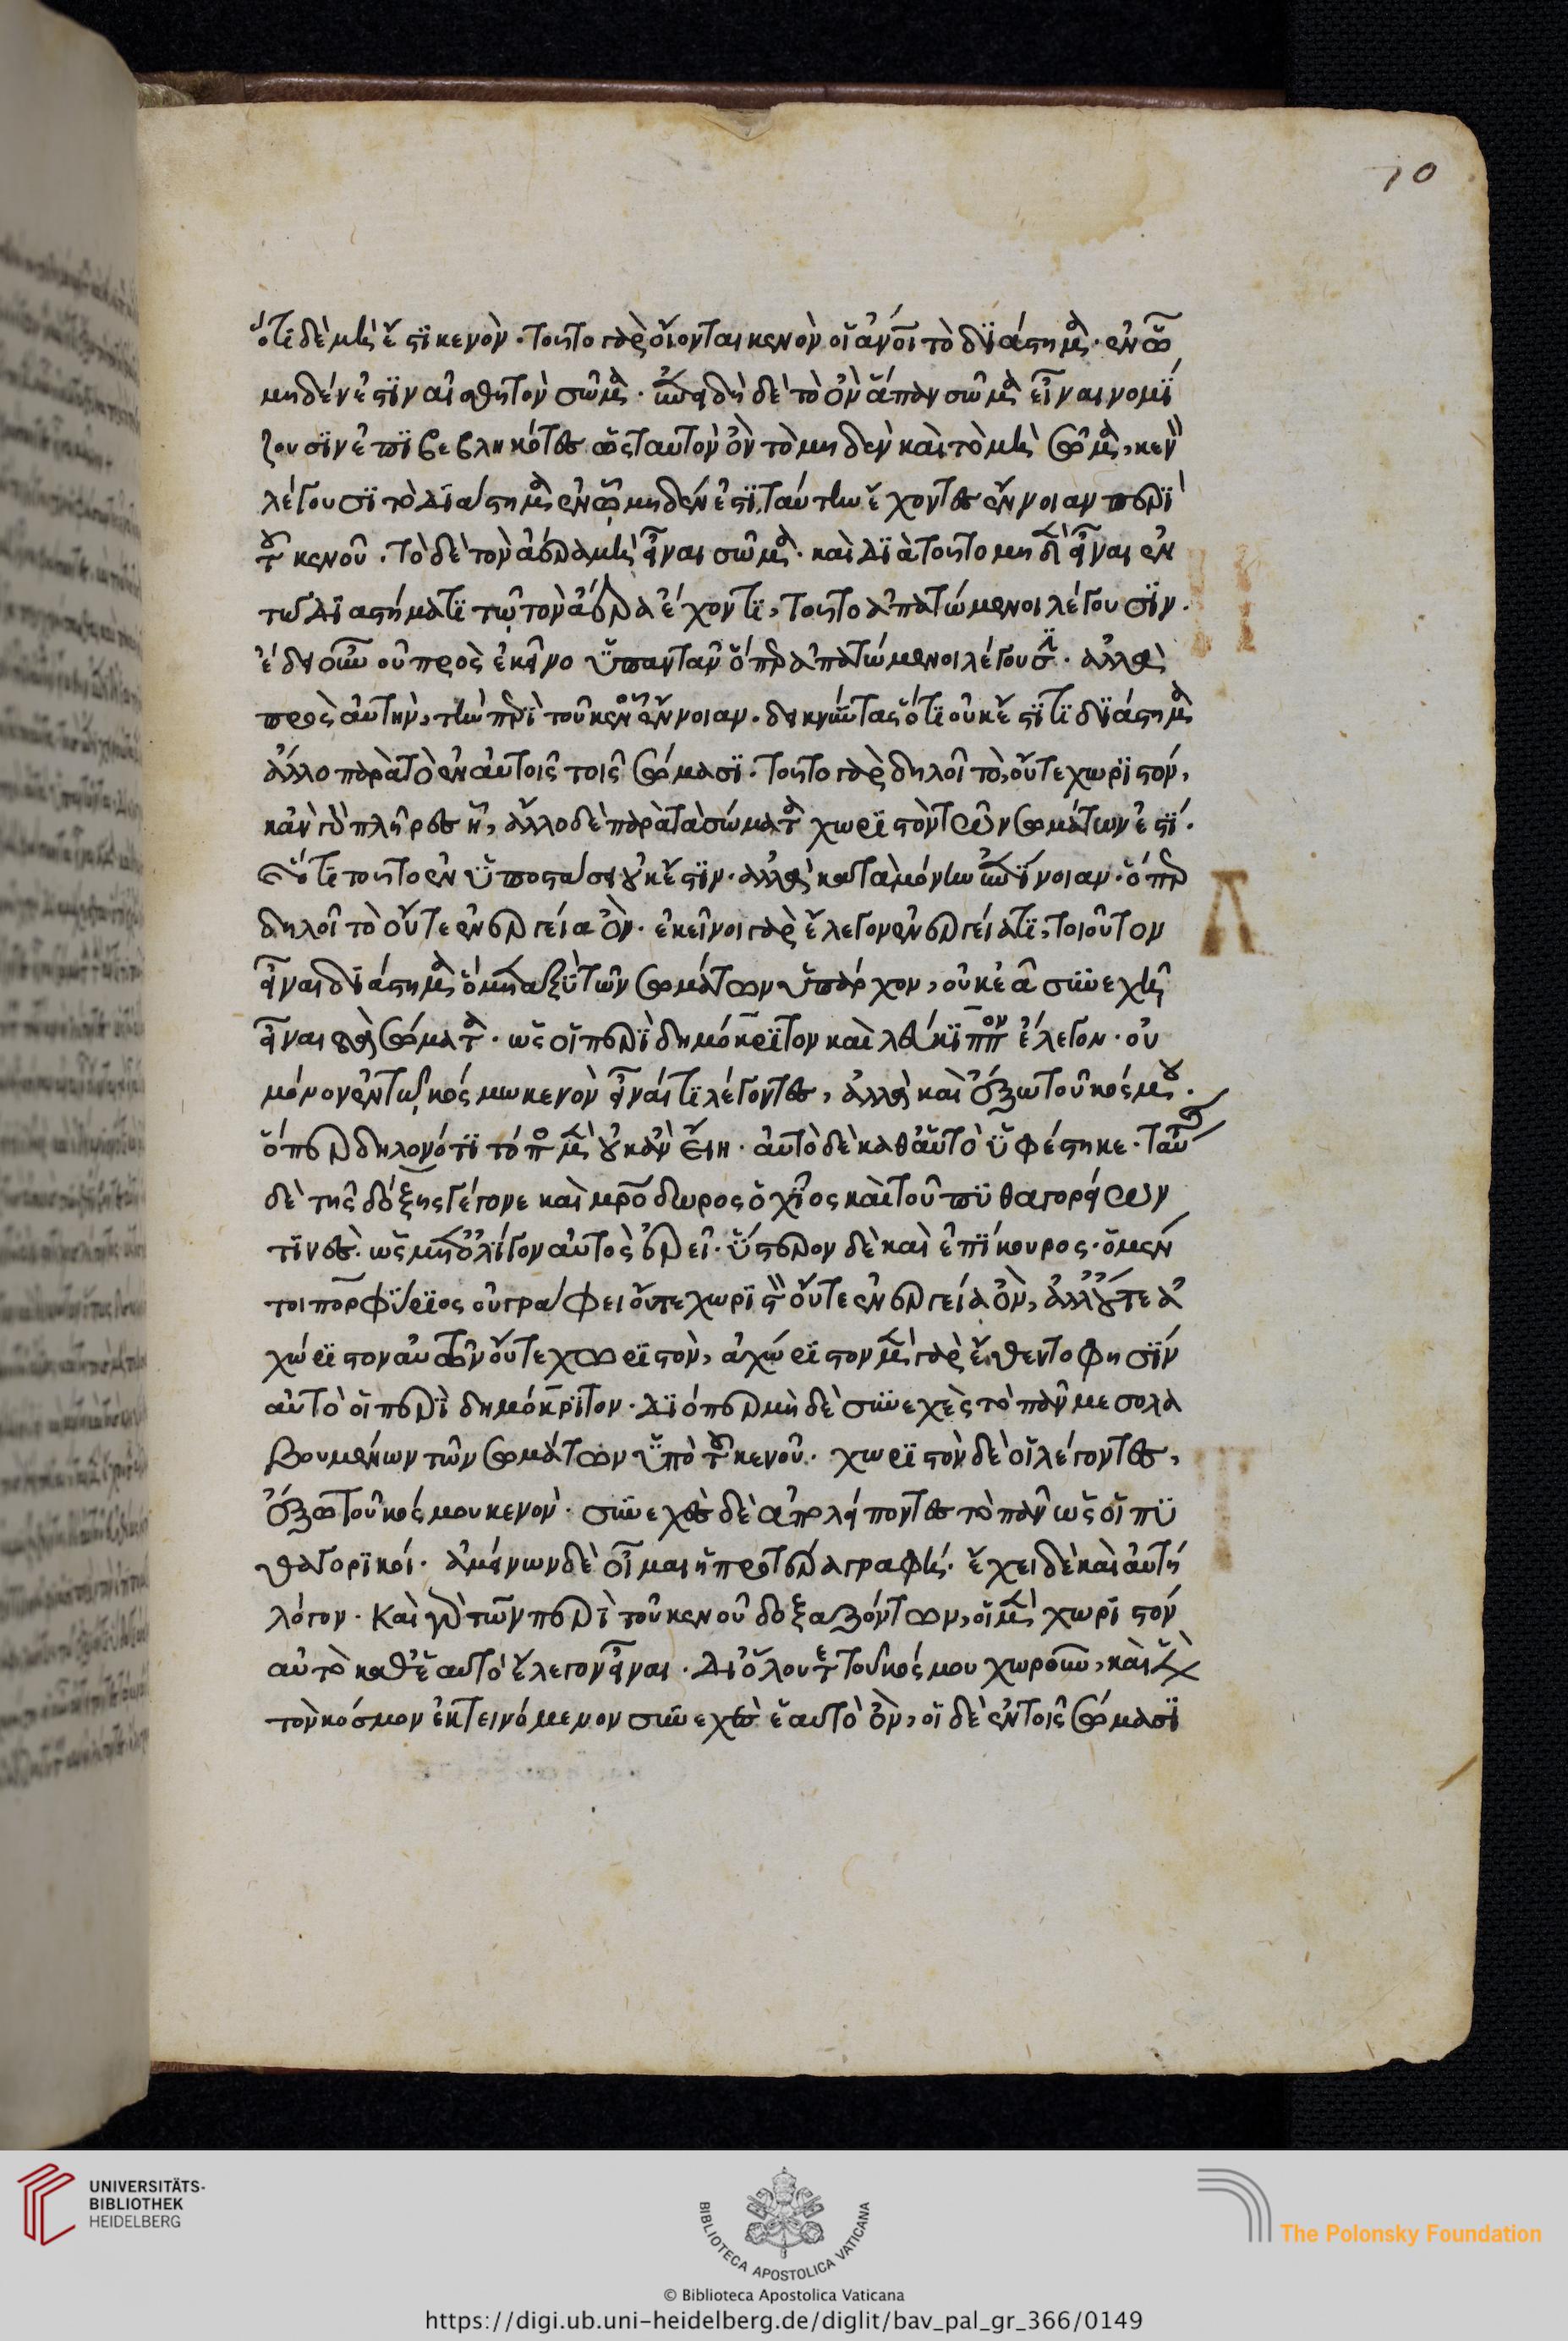 10
ὅτι δὲ μὴ ἔστι κενὸν· τοῦτο γὰρ οἴονται κενὸν οἱ ἄνοι τὸ διάστημα· ἐν ᾧ
μηδέν ἐστιν αἰσθητὸν σῶμα· ἐπειδὴ δὲ τὸ ὂν ἅπαν σῶμα εἶναι νομί
ζουσιν ἐπιβεβληκότες ὡς ταυτὸν ὂν τὸ μηδὲν καὶ τὸ μὴ σῶμα, κενὸν
λέγουσι τὸ διάστημα ἐν ᾧ μηδέν ἐστι, ταύτην ἔχοντες ἔννοιαν περὶ
τοῦ κενοῦ· τὸ δὲ τὸν ἀέρα μὴ εἶναι σῶμα· καὶ διὰ τοῦτο μηδὲν εἶναι ἐν
τῷ διαστήματι τῷ τὸν ἀέρα ἔχοντι, τοῦτο ἀπατώμενοι λέγουσιν·
ἔδει οὖν οὐ πρὸς ἐκεῖνο ὑπαντᾶν ὅπερ ἀπατώμενοι λέγουσιν· ἀλλὰ
πρὸς αὐτὴν, τὴν περὶ τοῦ κενοῦ ἔννοιαν· δεικνύντας ὅτι οὐκ ἔστι τι διάστημα
ἄλλο παρὰ τὸ ἐν αὐτοῖς τοῖς σώμασι· τοῦτο γὰρ δηλοῖ τὸ, οὔτε χωριστόν,
κἂν γὰρ πλῆρες ᾖ, ἄλλο δὲ παρὰ τὰ σώματα χωριστὸν τῶν σωμάτων ἐστί·
ὅτι τοῦτο ἐν ὑποστάσει οὐκ ἔστιν· ἀλλὰ κατὰ μόνην ἐπίνοιαν· ὅπερ
δηλοῖ τὸ οὔτε ἐνεργείᾳ ὂν· ἐκεῖνοι γὰρ ἔλεγον ἐνεργείᾳ τι, τοιοῦτον
εἶναι διάστημα ὃ μεταξὺ τῶν σωμάτων ὑπάρχον, οὐκ ἐᾷ συνεχῆ
εἶναι τὰ σώματα· ὡς οἱ περὶ δημόκριτον καὶ λεύκιππον ἔλεγον· οὐ
μόνον ἐν τῷ κόσμω κενὸν εἶναί τι λέγοντες, ἀλλὰ καὶ ἔξω τοῦ κόσμου·
ὅπερ δηλονότι τόπος μὲν οὐκ ἂν εἴη· αὐτὸ δὲ καθ αὑτὸ ὑφέστηκε· ταύτης
δὲ τῆς δόξης γέγονε καὶ μητρόδωρος ὁ χῖος καὶ τοῦ πυθαγορείων
τινὲς· ὡς μετ ὀλίγον αὐτὸς ἐρεῖ· ὕστερον δὲ καὶ ἐπίκουρος· ὁ μέν
τοι πορφύριος οὐ γράφει οὔτε χωριστὸν οὔτε ἐνεργείᾳ ὂν, ἀλλ οὔτε ἀ
χώριστον αὐτῶν οὔτε χωριστὸν, ἀχώριστον μὲν γὰρ ἔθεντο φησὶν
αὐτὸ οἱ περὶ δημόκριτον· διόπερ μὴ δὲ συνεχὲς τὸ πᾶν μεσολα
βουμένων τῶν σωμάτων ὑπὸ τοῦ κενοῦ· χωριστὸν δὲ οἱ λέγοντες,
ἔξω τοῦ κόσμου κενὸν· συνεχὲς δὲ ἀπολείποντες τὸ πᾶν ὡς οἱ πυ
θαγορικοί· ἀμείνων δὲ οἶμαι ἡ προτέρα γραφὴ· ἔχει δὲ καὶ αὐτὴ
λόγον· καὶ γὰρ τῶν περὶ τοῦ κενοῦ δοξαζόντων, οἱ μὲν χωριστόν
αὐτὸ καθ ἑαυτὸ ἔλεγον εἶναι· δι ὅλου τε τοῦ κόσμου χωροῦν, καὶ ἔξω
τὸν κόσμον ἐκτεινόμενον συνεχὲς ἑαυτὸ ὂν, οἱ δὲ ἐν τοῖς σώμασι
UNIVERSITÄTS-
BIBLIOTHEK
HEIDELBERG
BIBLIOTECA APOSTOLICA VATICANA
The Polonsky Foundation
© Biblioteca Apostolica Vaticana
https://digi.ub.uni-heidelberg.de/diglit/bav_pal_gr_366/0149